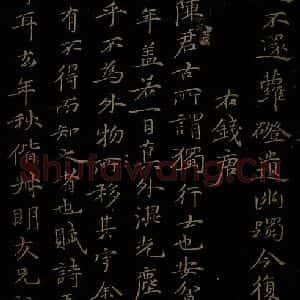 不還蘿磴遺幽躅今復
右錢唐
陳君古所謂獨行士也安貧
年盖若一日外混光塵
乎不為外物而移其字余
有不得而知者也賦詩
耳年秋偕明友兄
Shufawang.Cn